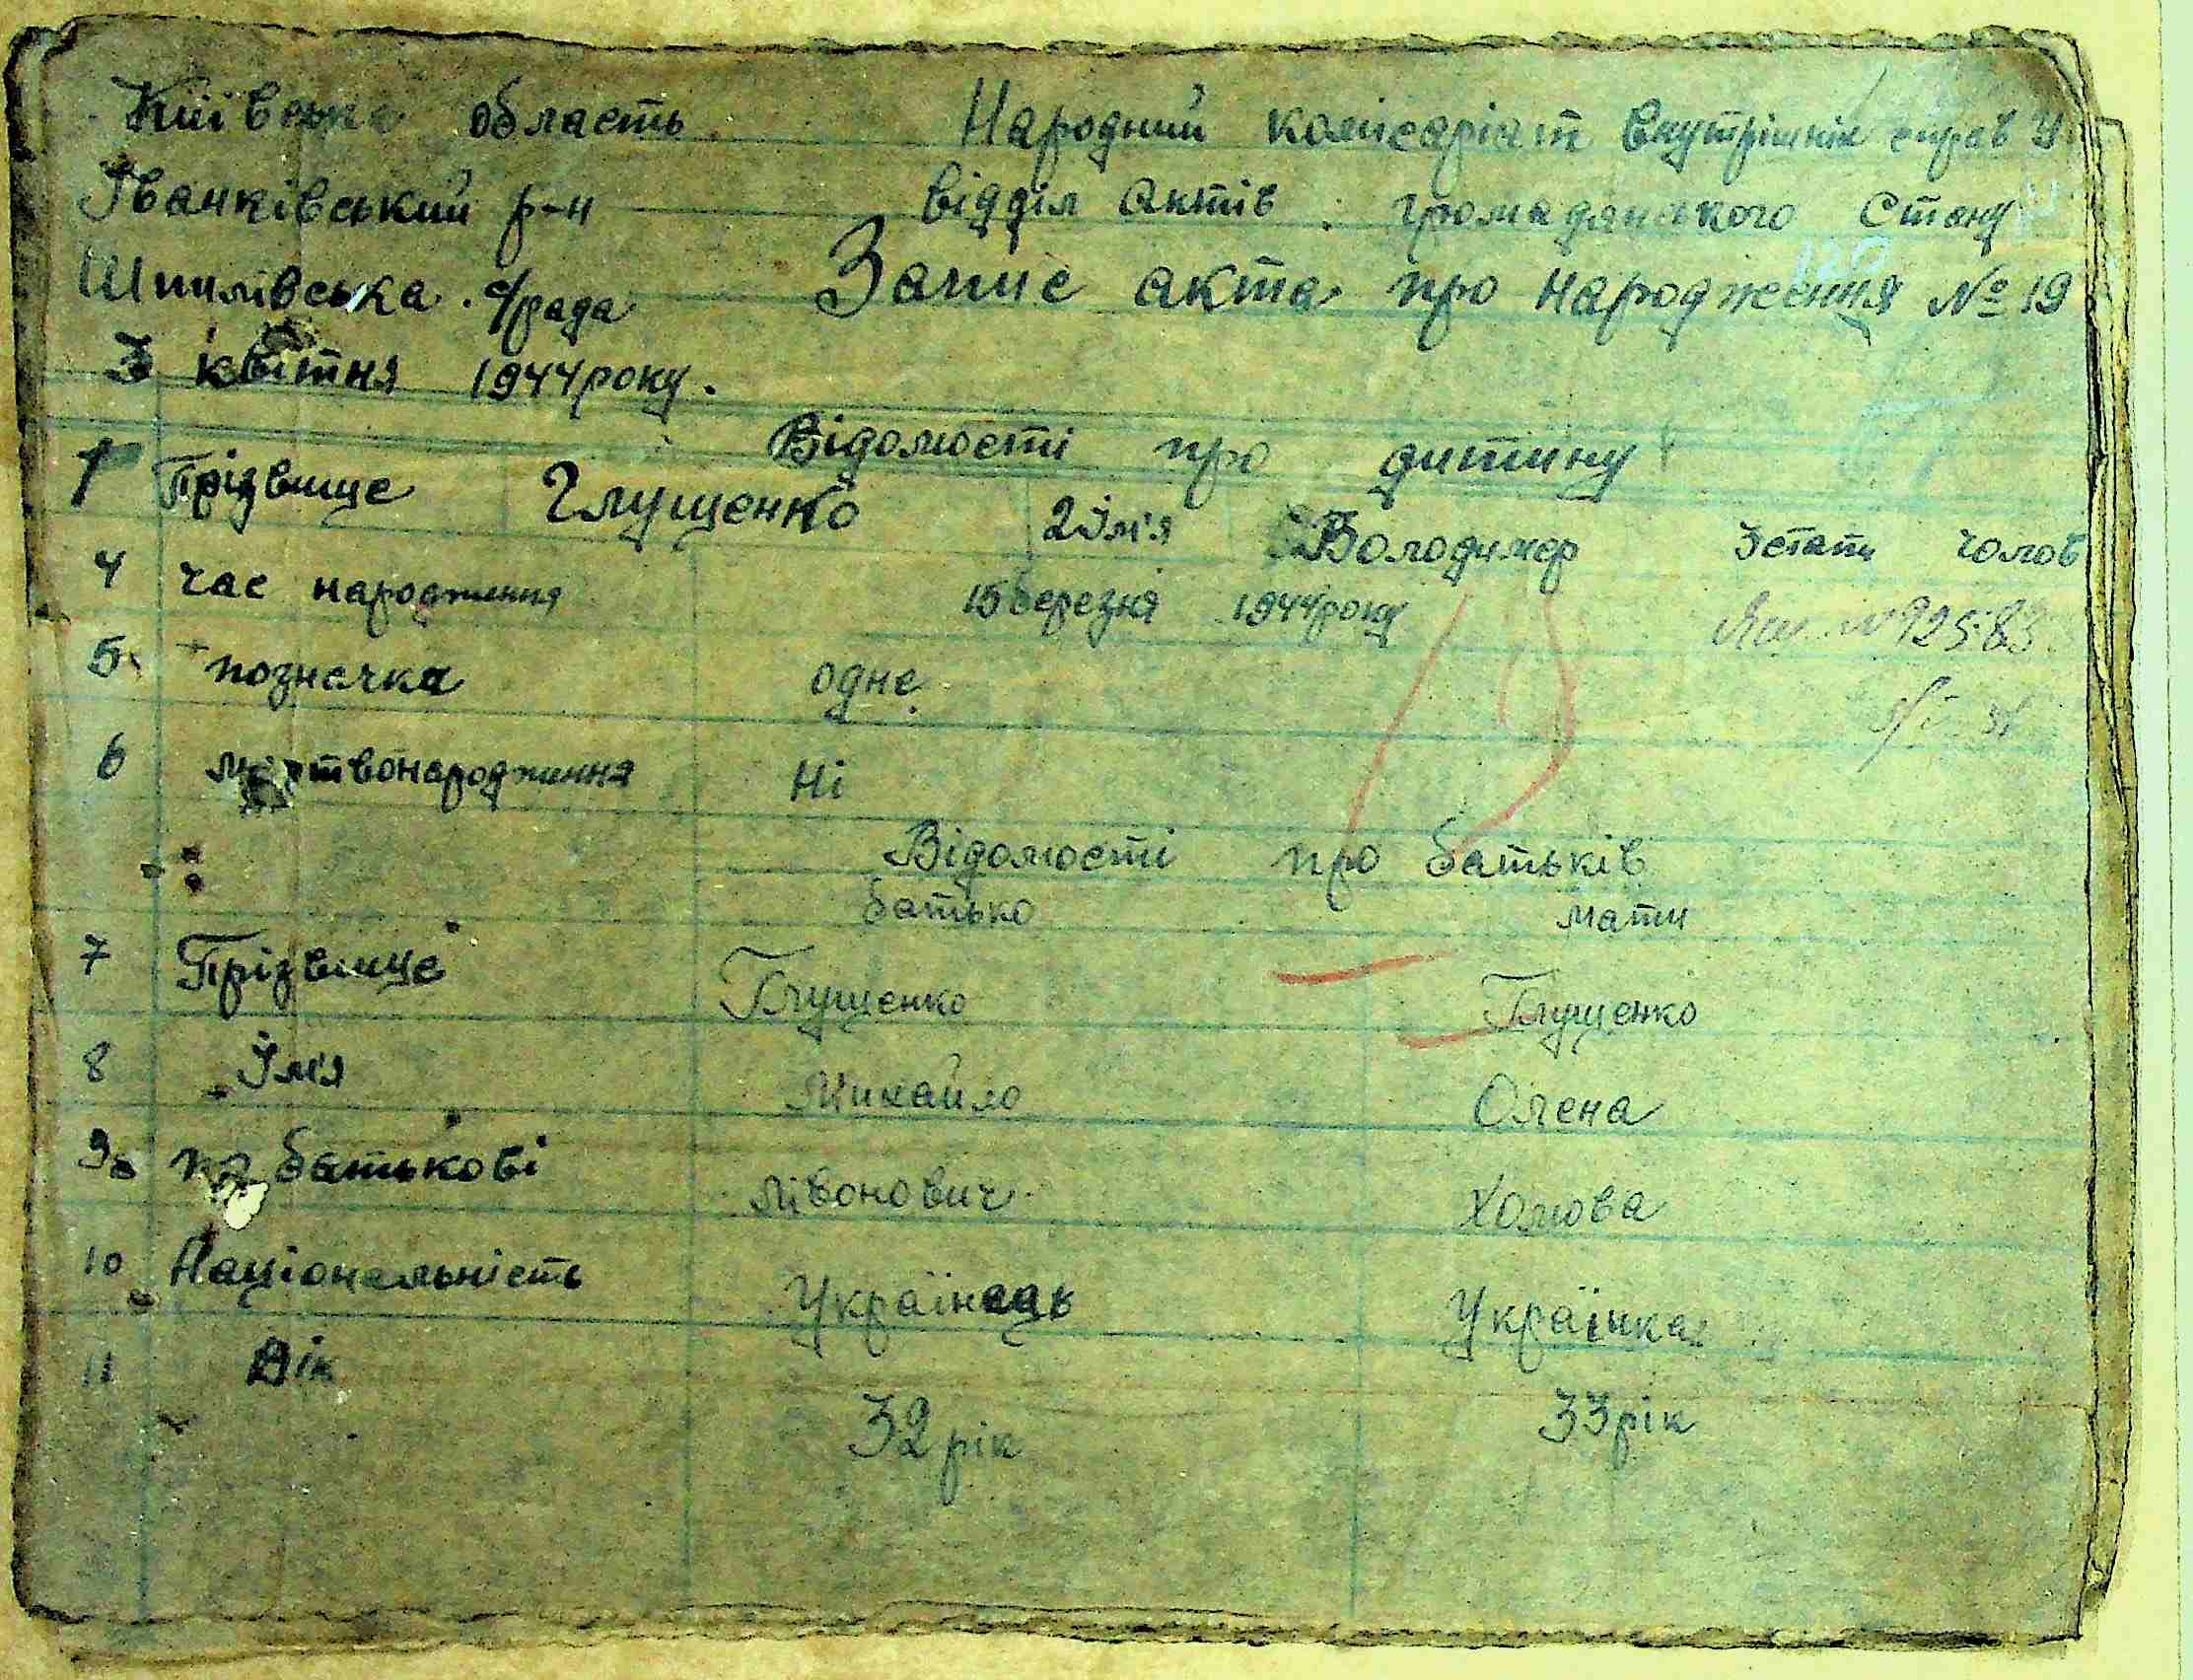 Київська область Народний комісаріат внутрішніх справ У
Іванківський р-н відділ актів громадянського стану
Шпилівська с/рада Запис акта про народження № 19
3 квітня 1944 року.
Відомості про дитину
1 Прізвище Глущенко 2 Ім'я Володимер 3 стать чолов
4 час народження 15 березня 1944 року
5 позначка одне
6 мертвонародження Ні
Відомості про батьків
батько мати
7 Прізвище Глущенко Глущенко
8 Ім'я Михайло Олена
9 по батькові Лівонович Хомова
10 Національність Українець Українка
11 Вік 32 рік 33 рік